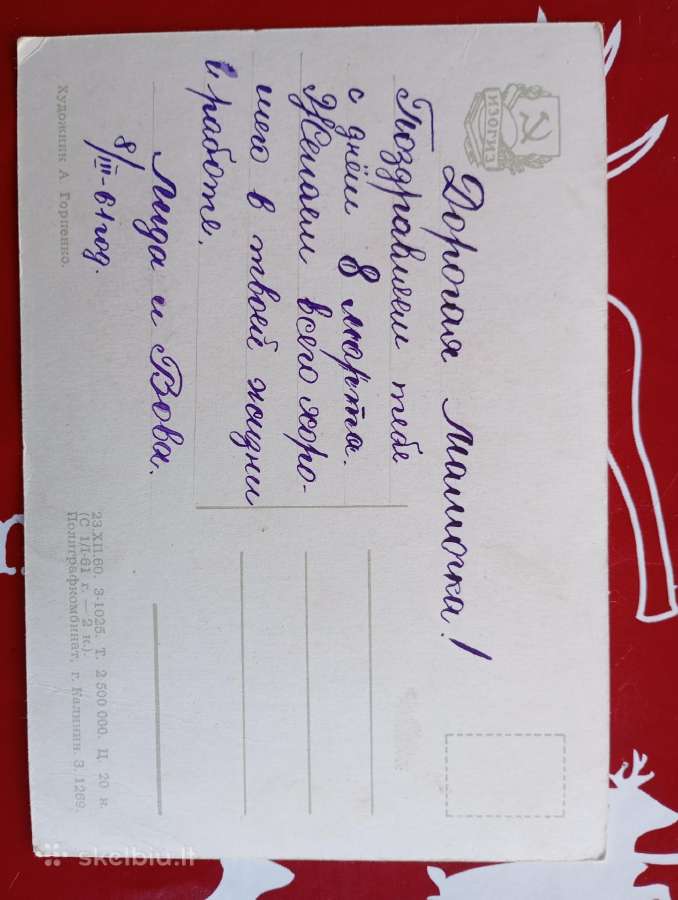 ИЗОГИЗ
Дорогая мамочка!
Поздравляем тебе
с днём 8 марта.
Желаем всего хоро-
шего в твоей жизни
и работе.
Лида и Вова.
8/III-61 год.
Художник А. Горпенко.
23.XII.60. З-1025. Т. 2 500 000. Ц. 20 к.
(С 1/I-61 г. — 2 к.).
Полиграфкомбинат, г. Калинин. З. 1269.
skelbiu.lt